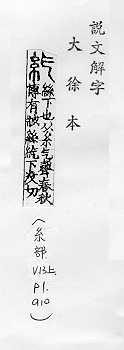 説文解字
大徐本
紇
絲下也从糸气聲春秋
傳有臧孫紇下没切
(糸部
V13上
P1.
910)